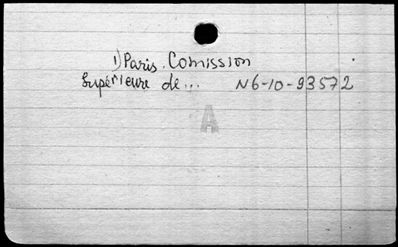 1) Paris. Comission
Supérieure de... N6-10-93572
A